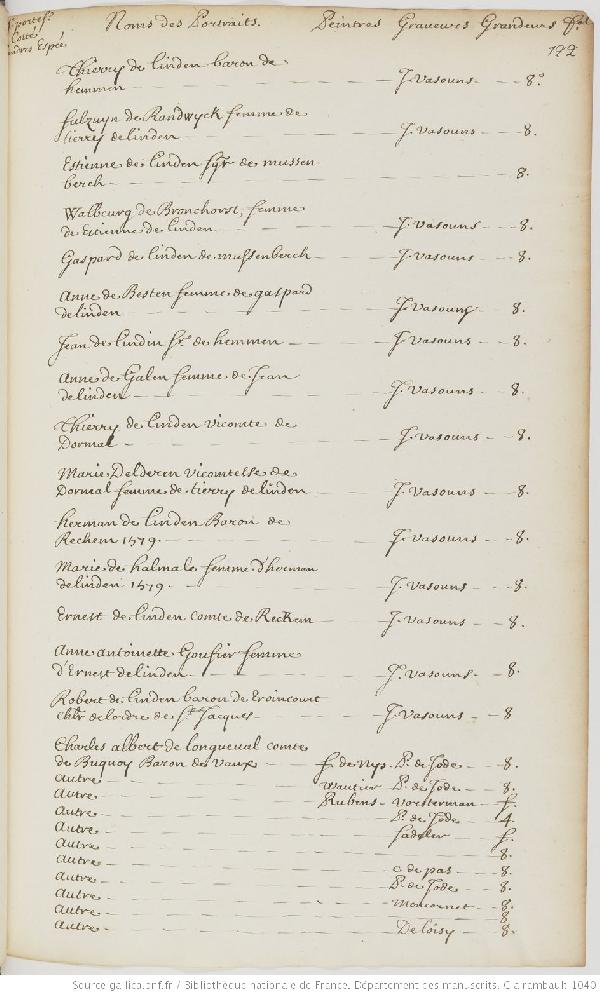 Noms des Portraits. Peintres Graveurs Grandeurs
122
Thierry de Linden baron de
hemmen — J. Vasouns — 8.°
de Randwyck femme de
tierry de linden — J. Vasouns — 8.
Estienne de Linden sgr. de mussen
berch — 8.
Walbourg de Bronchorst, femme
de Estienne de linden — J. Vasouns — 8.
Gaspard de linden de mussenberch — J. Vasouns — 8.
Anne de Besten femme de gaspard
de linden — J. Vasouns — 8.
Jean de Lindin sr. de hemmen — J. Vasouns — 8.
Anne de Galen femme de Jean
de linden — J. Vasouns — 8.
Thierry de Linden vicomte de
Dormal — J. Vasouns — 8.
Marie Delderen vicomtesse de
Dormal femme de tierry de linden — J. Vasouns — 8.
herman de Linden Baron de
Reckem 1579. — J. Vasouns — 8.
Marie de halmale femme d'herman
de linden 1579. — J. Vasouns — 8.
Ernest de Linden comte de Reckem — J. Vasouns — 8.
Anne antoinette Goufier femme
d'Ernest de linden. — J. Vasouns — 8.
Robert de Linden baron de Froincourt
chlr de lordre de St Jacques — J. Vasouns — 8
Charles albert de longueval comte
de Buquoy Baron de Vaux — f. de nys. P. de Jode — 8.
Autre — Wautier P. de Jode — 8.
Autre — Rubens — Vorsterman — f.
Autre — P. de Jode — 4.
Autre — Sadeler — f.
Autre — 8.
Autre — c de pas — 8.
Autre — P. de Jode — 8.
Autre — moncornet — 8.
Autre — 8
Autre — De Loisy — 8.
Source gallica.bnf.fr / Bibliothèque nationale de France. Département des manuscrits. Clairambault 1040